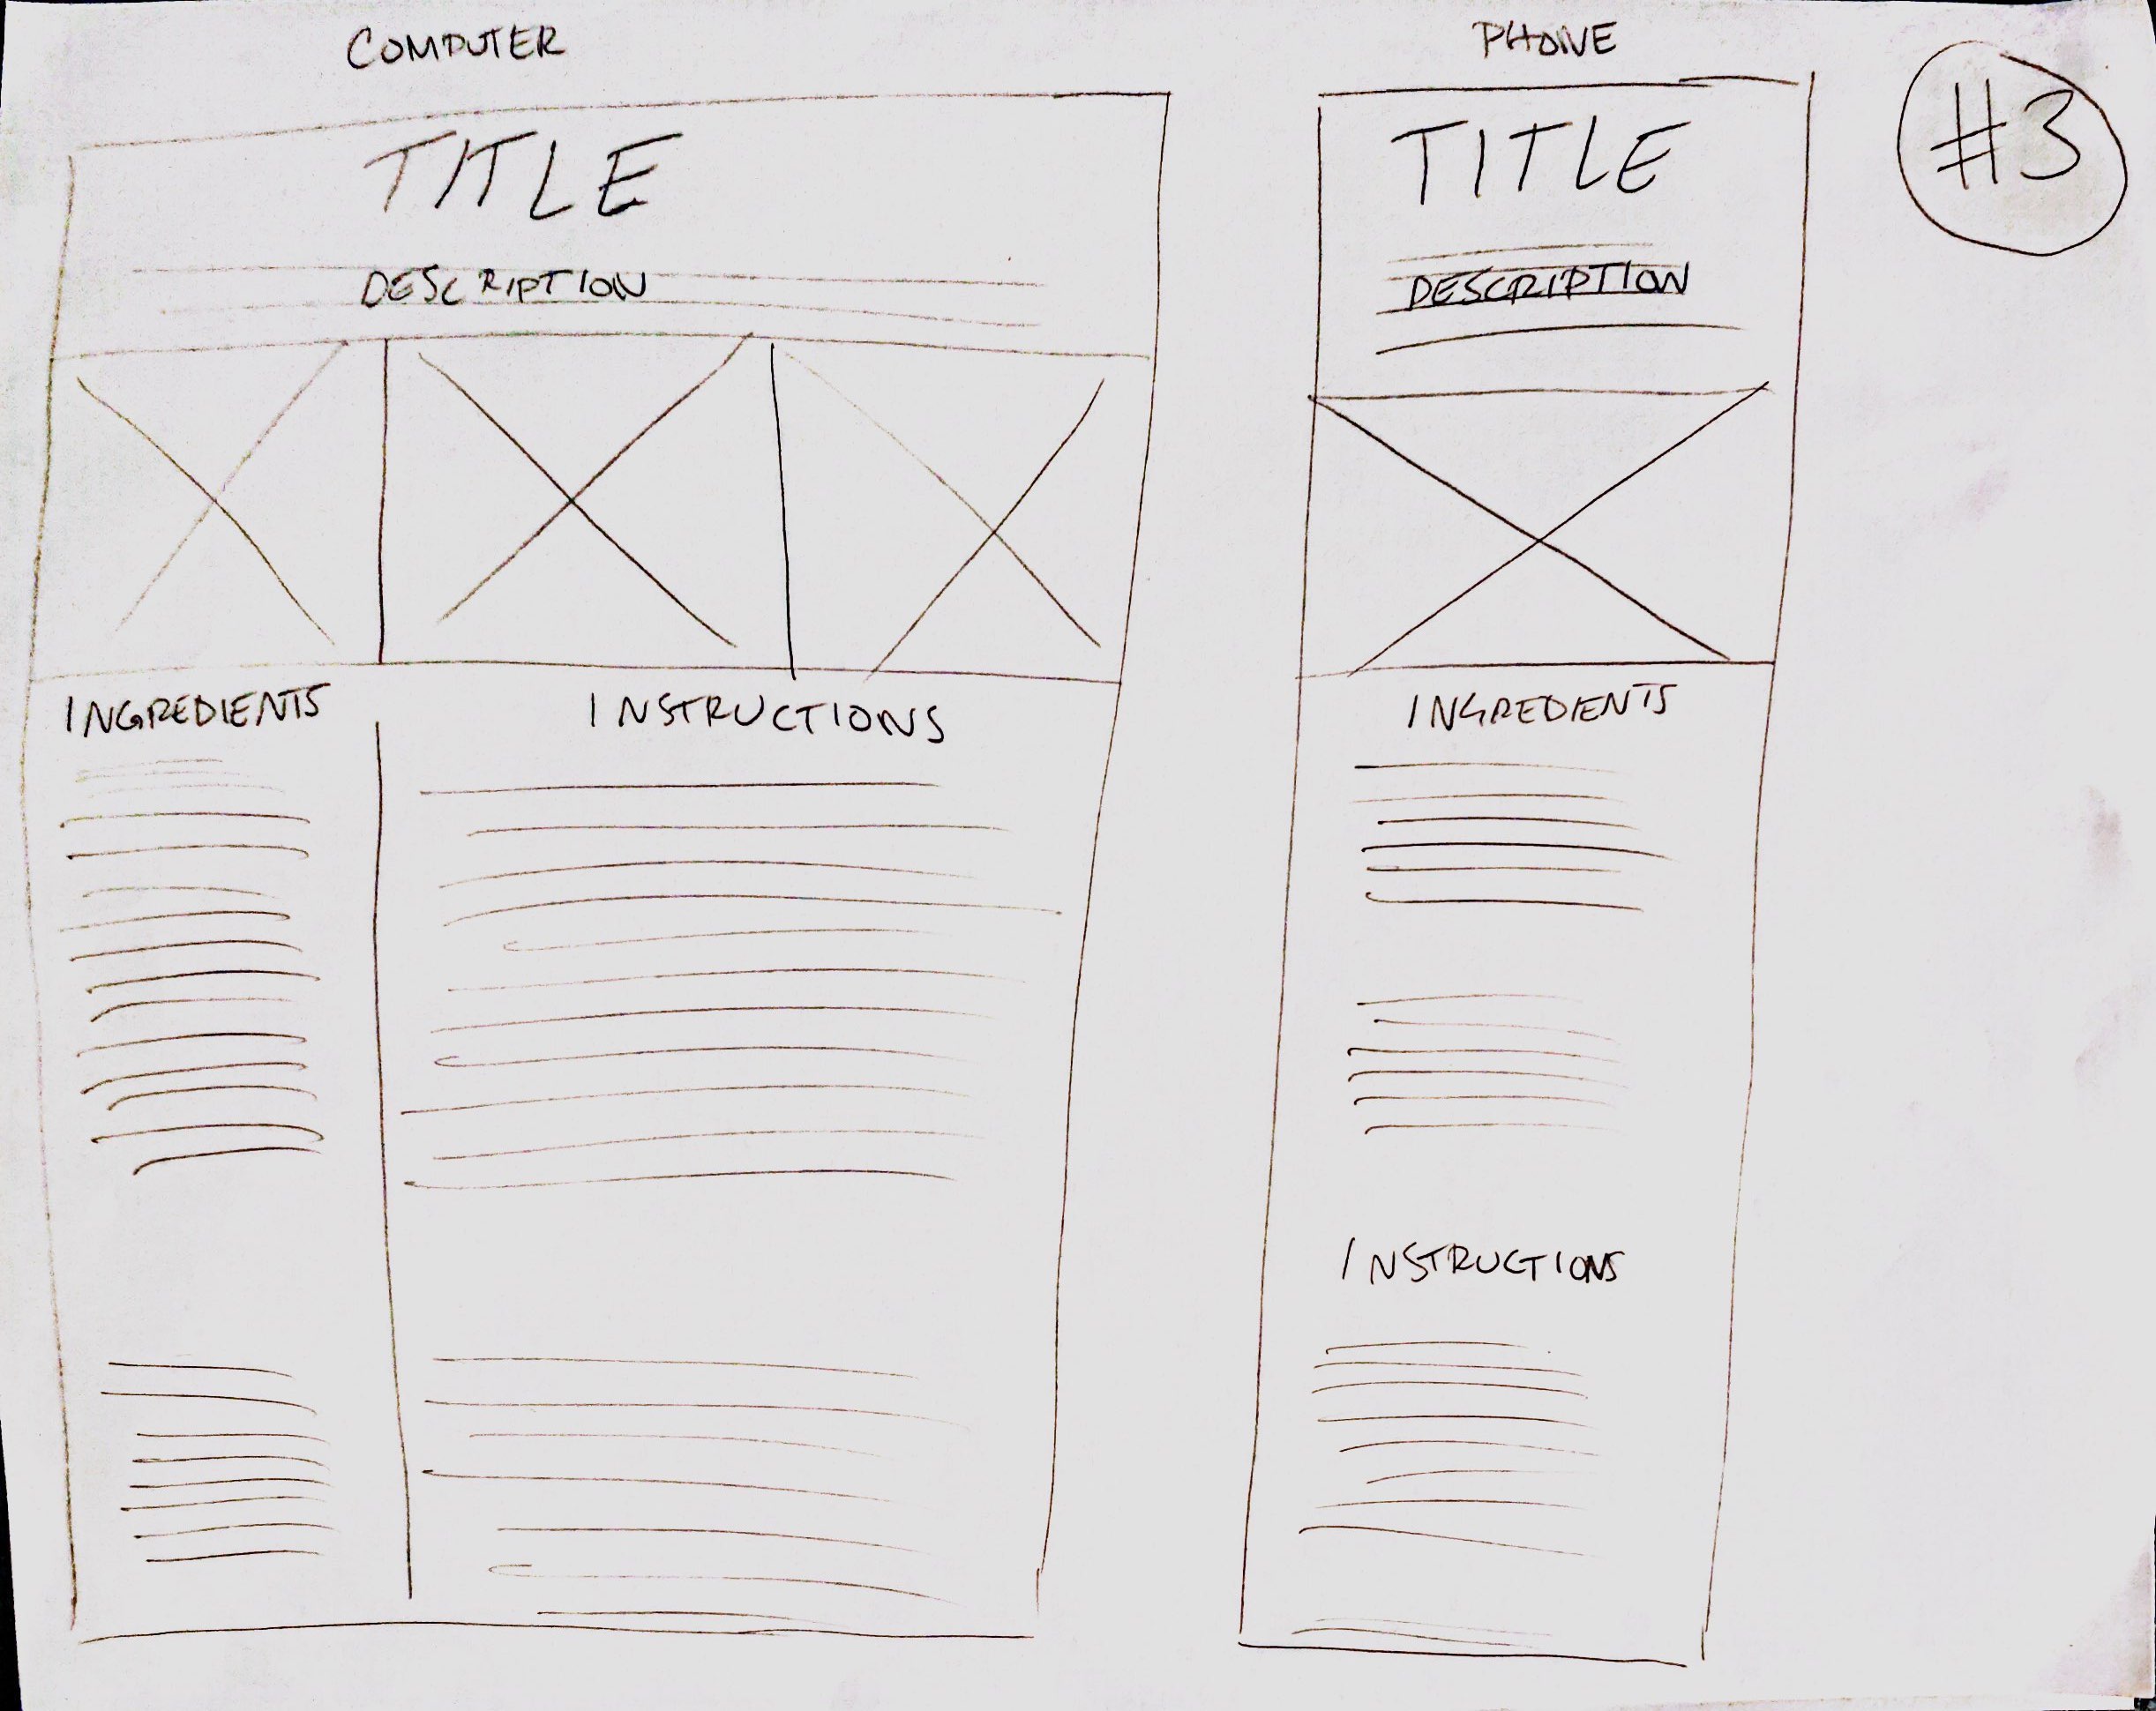 COMPUTER
TITLE
DESCRIPTION
INGREDIENTS
INSTRUCTIONS
PHONE
TITLE
DESCRIPTION
INGREDIENTS
INSTRUCTIONS
#3